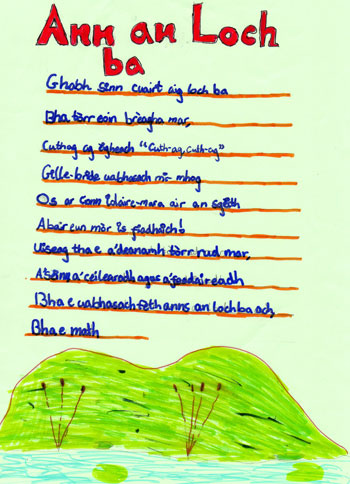 Ann an Loch
ba
Ghabh sinn cuairt aig loch ba
Bha tòrr eoin brèagha mar,
Cuthag ag èigheach "Cuth-ag, cuth-ag"
Gille-brìde uabhasach mì-mhog
Os ar cionn Iolaire-mara air an sgèith
Abair eun mòr is fiadhaich!
Uiseag tha e a'deanamh tòrr rud mar,
A'seinn a'ceilearadh agus a'feadaireadh
Bha e uabhasach feth anns an lochba ach,
Bha e math